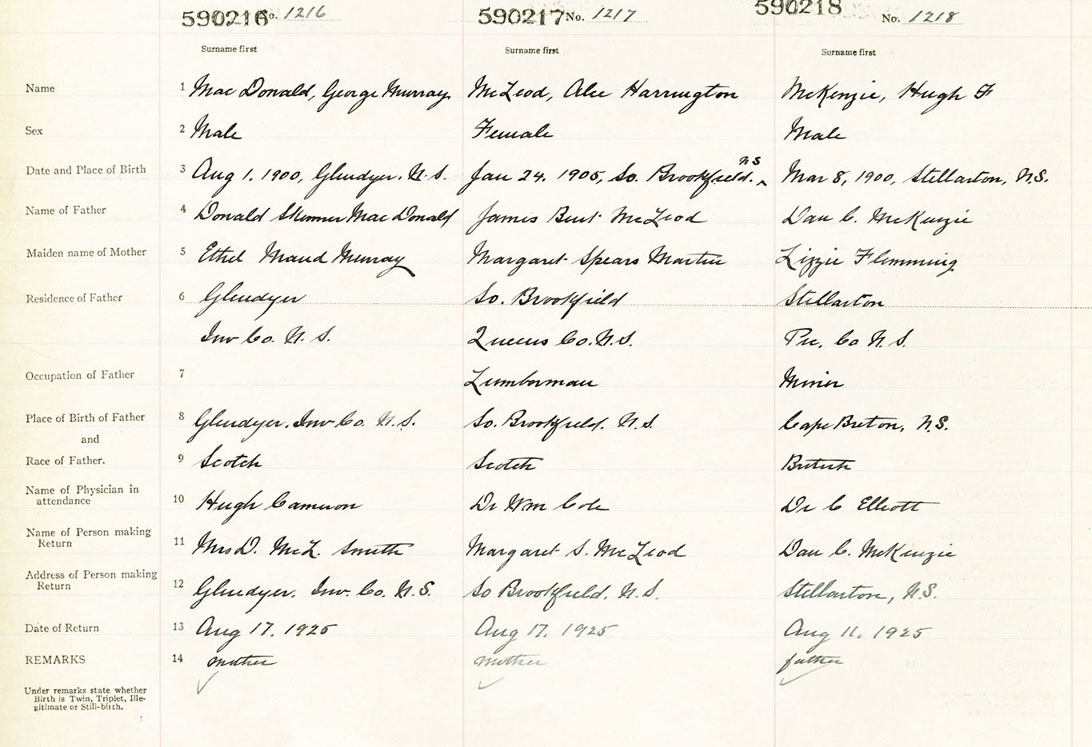 590216 No. 1216 590217 No. 1217 590218 No. 1218
Surname first Surname first Surname first
Name 1 Mac Donald, George Murray McLeod, Alice Harrington McKenzie, Hugh F
Sex 2 Male Female Male
Date and Place of Birth 3 Aug 1. 1900, Glendyer. N.S. Jan 24. 1905, So. Brookfield. NS Mar 8, 1900, Stellarton, N.S.
Name of Father 4 Donald Skinner Mac Donald James Bent McLeod Dan C. McKenzie
Maiden name of Mother 5 Ethel Maud Murray Margaret Spears Martin Lizzie Flemming
Residence of Father 6 Glendyer So. Brookfield Stellarton
Inv Co. N.S. Queens Co. N.S. Pic. Co N.S.
Occupation of Father 7 Lumberman Miner
Place of Birth of Father 8 Glendyer. Inv Co. N.S. So. Brookfield. N.S Cape Breton, N.S.
and
Race of Father. 9 Scotch Scotch British
Name of Physician in
attendance 10 Hugh Cameron Dr Wm Cole Dr C Elliott
Name of Person making
Return 11 Mrs D. McL. Smith Margaret S. McLeod Dan C. McKenzie
Address of Person making
Return 12 Glendyer. Inv. Co. N.S. So Brookfield. N.S. Stellarton, N.S.
Date of Return 13 Aug 17. 1925 Aug 17. 1925 Aug 11. 1925
REMARKS 14 mother mother father
Under remarks state whether
Birth is Twin, Triplet, Ille-
gitimate or Still-birth.